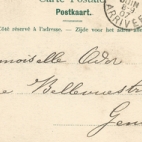 Carte Postale
Postkaart.
Côté réservé à l'adresse. — Zijde voor het adres
ARRIVÉE
moiselle
e Bellevuestr
Gen